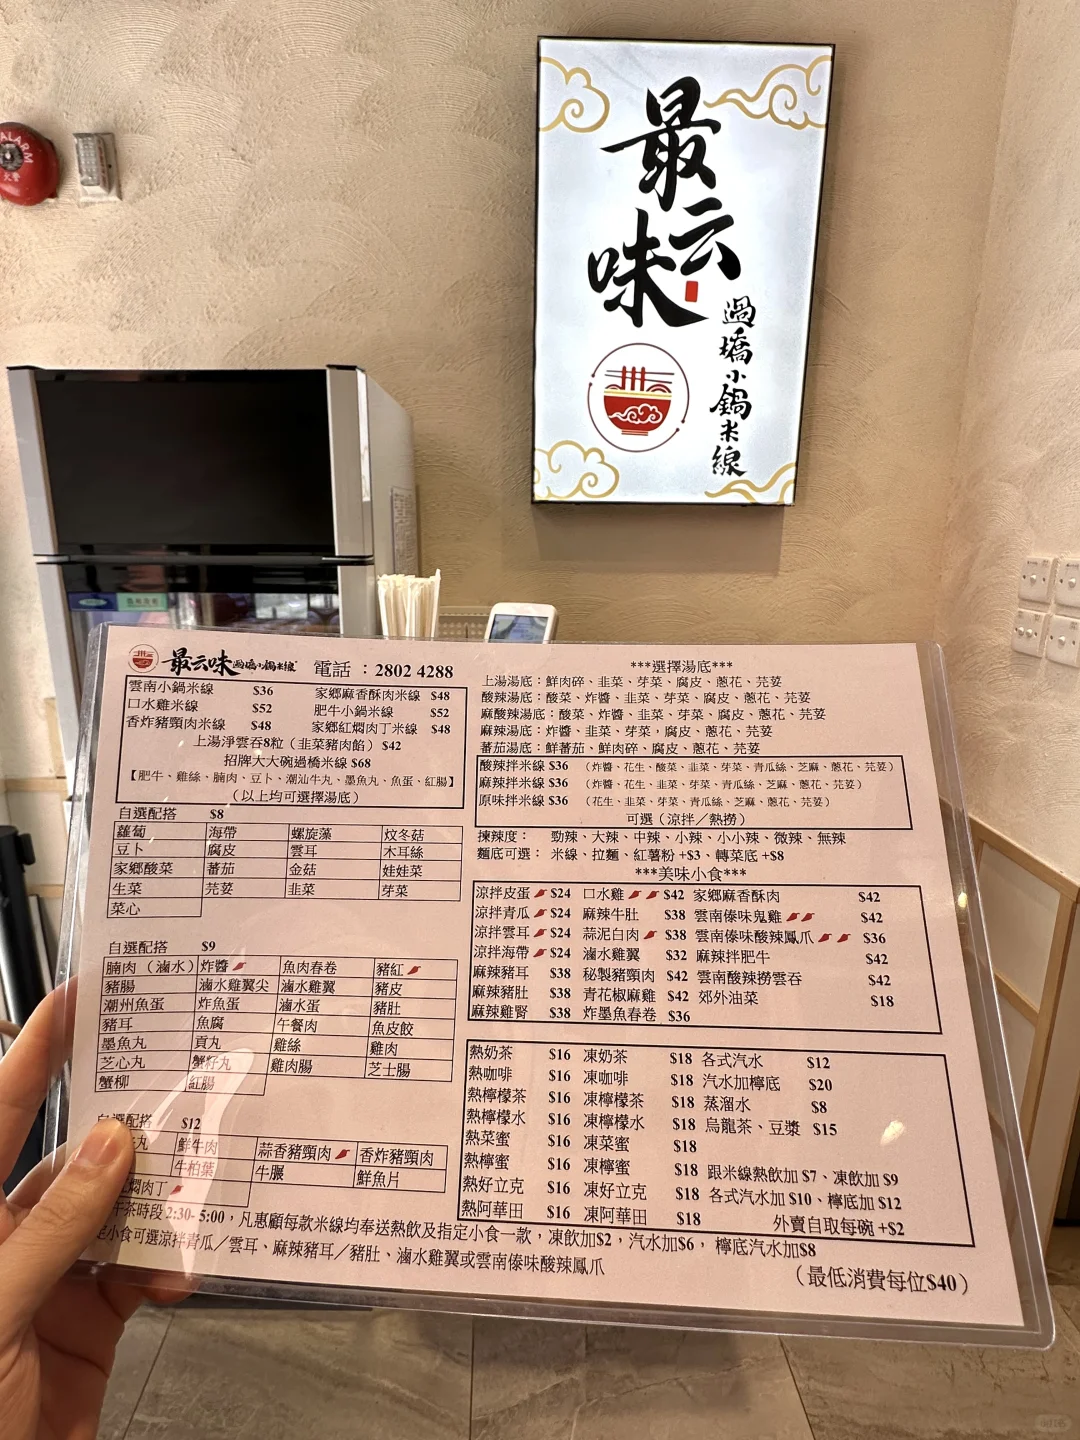 ALARM
火警
最
云
味
過橋小鍋米線
最云味過橋小鍋米線 電話：2802 4288
雲南小鍋米線 $36 家鄉麻香酥肉米線 $48
口水雞米線 $52 肥牛小鍋米線 $52
香炸豬頸肉米線 $48 家鄉紅燜肉丁米線 $48
上湯淨雲吞8粒（韭菜豬肉餡）$42
招牌大大碗過橋米線 $68
【肥牛、雞絲、腩肉、豆卜、潮汕牛丸、墨魚丸、魚蛋、紅腸】
（以上均可選擇湯底）
自選配搭 $8
蘿蔔 海帶 螺旋藻 炆冬菇
豆卜 腐皮 雲耳 木耳絲
家鄉酸菜 蕃茄 金菇 娃娃菜
生菜 芫荽 韭菜 芽菜
菜心
自選配搭 $9
腩肉（滷水） 炸醬 魚肉春卷 豬紅
豬腸 滷水雞翼尖 滷水雞翼 豬皮
潮州魚蛋 炸魚蛋 滷水蛋 豬肚
豬耳 魚腐 午餐肉 魚皮餃
墨魚丸 貢丸 雞絲 雞肉
芝心丸 蟹籽丸 雞肉腸 芝士腸
蟹柳 紅腸
自選配搭 $12
丸 鮮牛肉 蒜香豬頸肉 香炸豬頸肉
牛柏葉 牛𦟌 鮮魚片
燜肉丁
午茶時段 2:30- 5:00，凡惠顧每款米線均奉送熱飲及指定小食一款，凍飲加$2，汽水加$6，檸底汽水加$8
定小食可選涼拌青瓜／雲耳、麻辣豬耳／豬肚、滷水雞翼或雲南傣味酸辣鳳爪
***選擇湯底***
上湯湯底：鮮肉碎、韭菜、芽菜、腐皮、蔥花、芫荽
酸辣湯底：酸菜、炸醬、韭菜、芽菜、腐皮、蔥花、芫荽
麻酸辣湯底：酸菜、炸醬、韭菜、芽菜、腐皮、蔥花、芫荽
麻辣湯底：炸醬、韭菜、芽菜，腐皮、蔥花、芫荽
蕃茄湯底：鮮蕃茄、鮮肉碎、腐皮、蔥花、芫荽
酸辣拌米線 $36 （炸醬、花生、酸菜、韭菜、芽菜、青瓜絲、芝麻、蔥花、芫荽）
麻辣拌米線 $36 （炸醬、花生、韭菜、芽菜、青瓜絲、芝麻、蔥花、芫荽）
原味拌米線 $36 （花生、韭菜、芽菜、青瓜絲、芝麻、蔥花、芫荽）
可選（涼拌／熱撈）
揀辣度： 勁辣、大辣、中辣、小辣、小小辣、微辣、無辣
麵底可選： 米線、拉麵、紅薯粉 +$3、轉菜底 +$8
***美味小食***
涼拌皮蛋 $24 口水雞 $42 家鄉麻香酥肉 $42
涼拌青瓜 $24 麻辣牛肚 $38 雲南傣味鬼雞 $42
涼拌雲耳 $24 蒜泥白肉 $38 雲南傣味酸辣鳳爪 $36
涼拌海帶 $24 滷水雞翼 $32 麻辣拌肥牛 $42
麻辣豬耳 $38 秘製豬頸肉 $42 雲南酸辣撈雲吞 $42
麻辣豬肚 $38 青花椒麻雞 $42 郊外油菜 $18
麻辣雞腎 $38 炸墨魚春卷 $36
熱奶茶 $16 凍奶茶 $18 各式汽水 $12
熱咖啡 $16 凍咖啡 $18 汽水加檸底 $20
熱檸檬茶 $16 凍檸檬茶 $18 蒸溜水 $8
熱檸檬水 $16 凍檸檬水 $18 烏龍茶、豆漿 $15
熱菜蜜 $16 凍菜蜜 $18
熱檸蜜 $16 凍檸蜜 $18 跟米線熱飲加 $7、凍飲加 $9
熱好立克 $16 凍好立克 $18 各式汽水加 $10、檸底加 $12
熱阿華田 $16 凍阿華田 $18 外賣自取每碗 +$2
（最低消費每位$40）